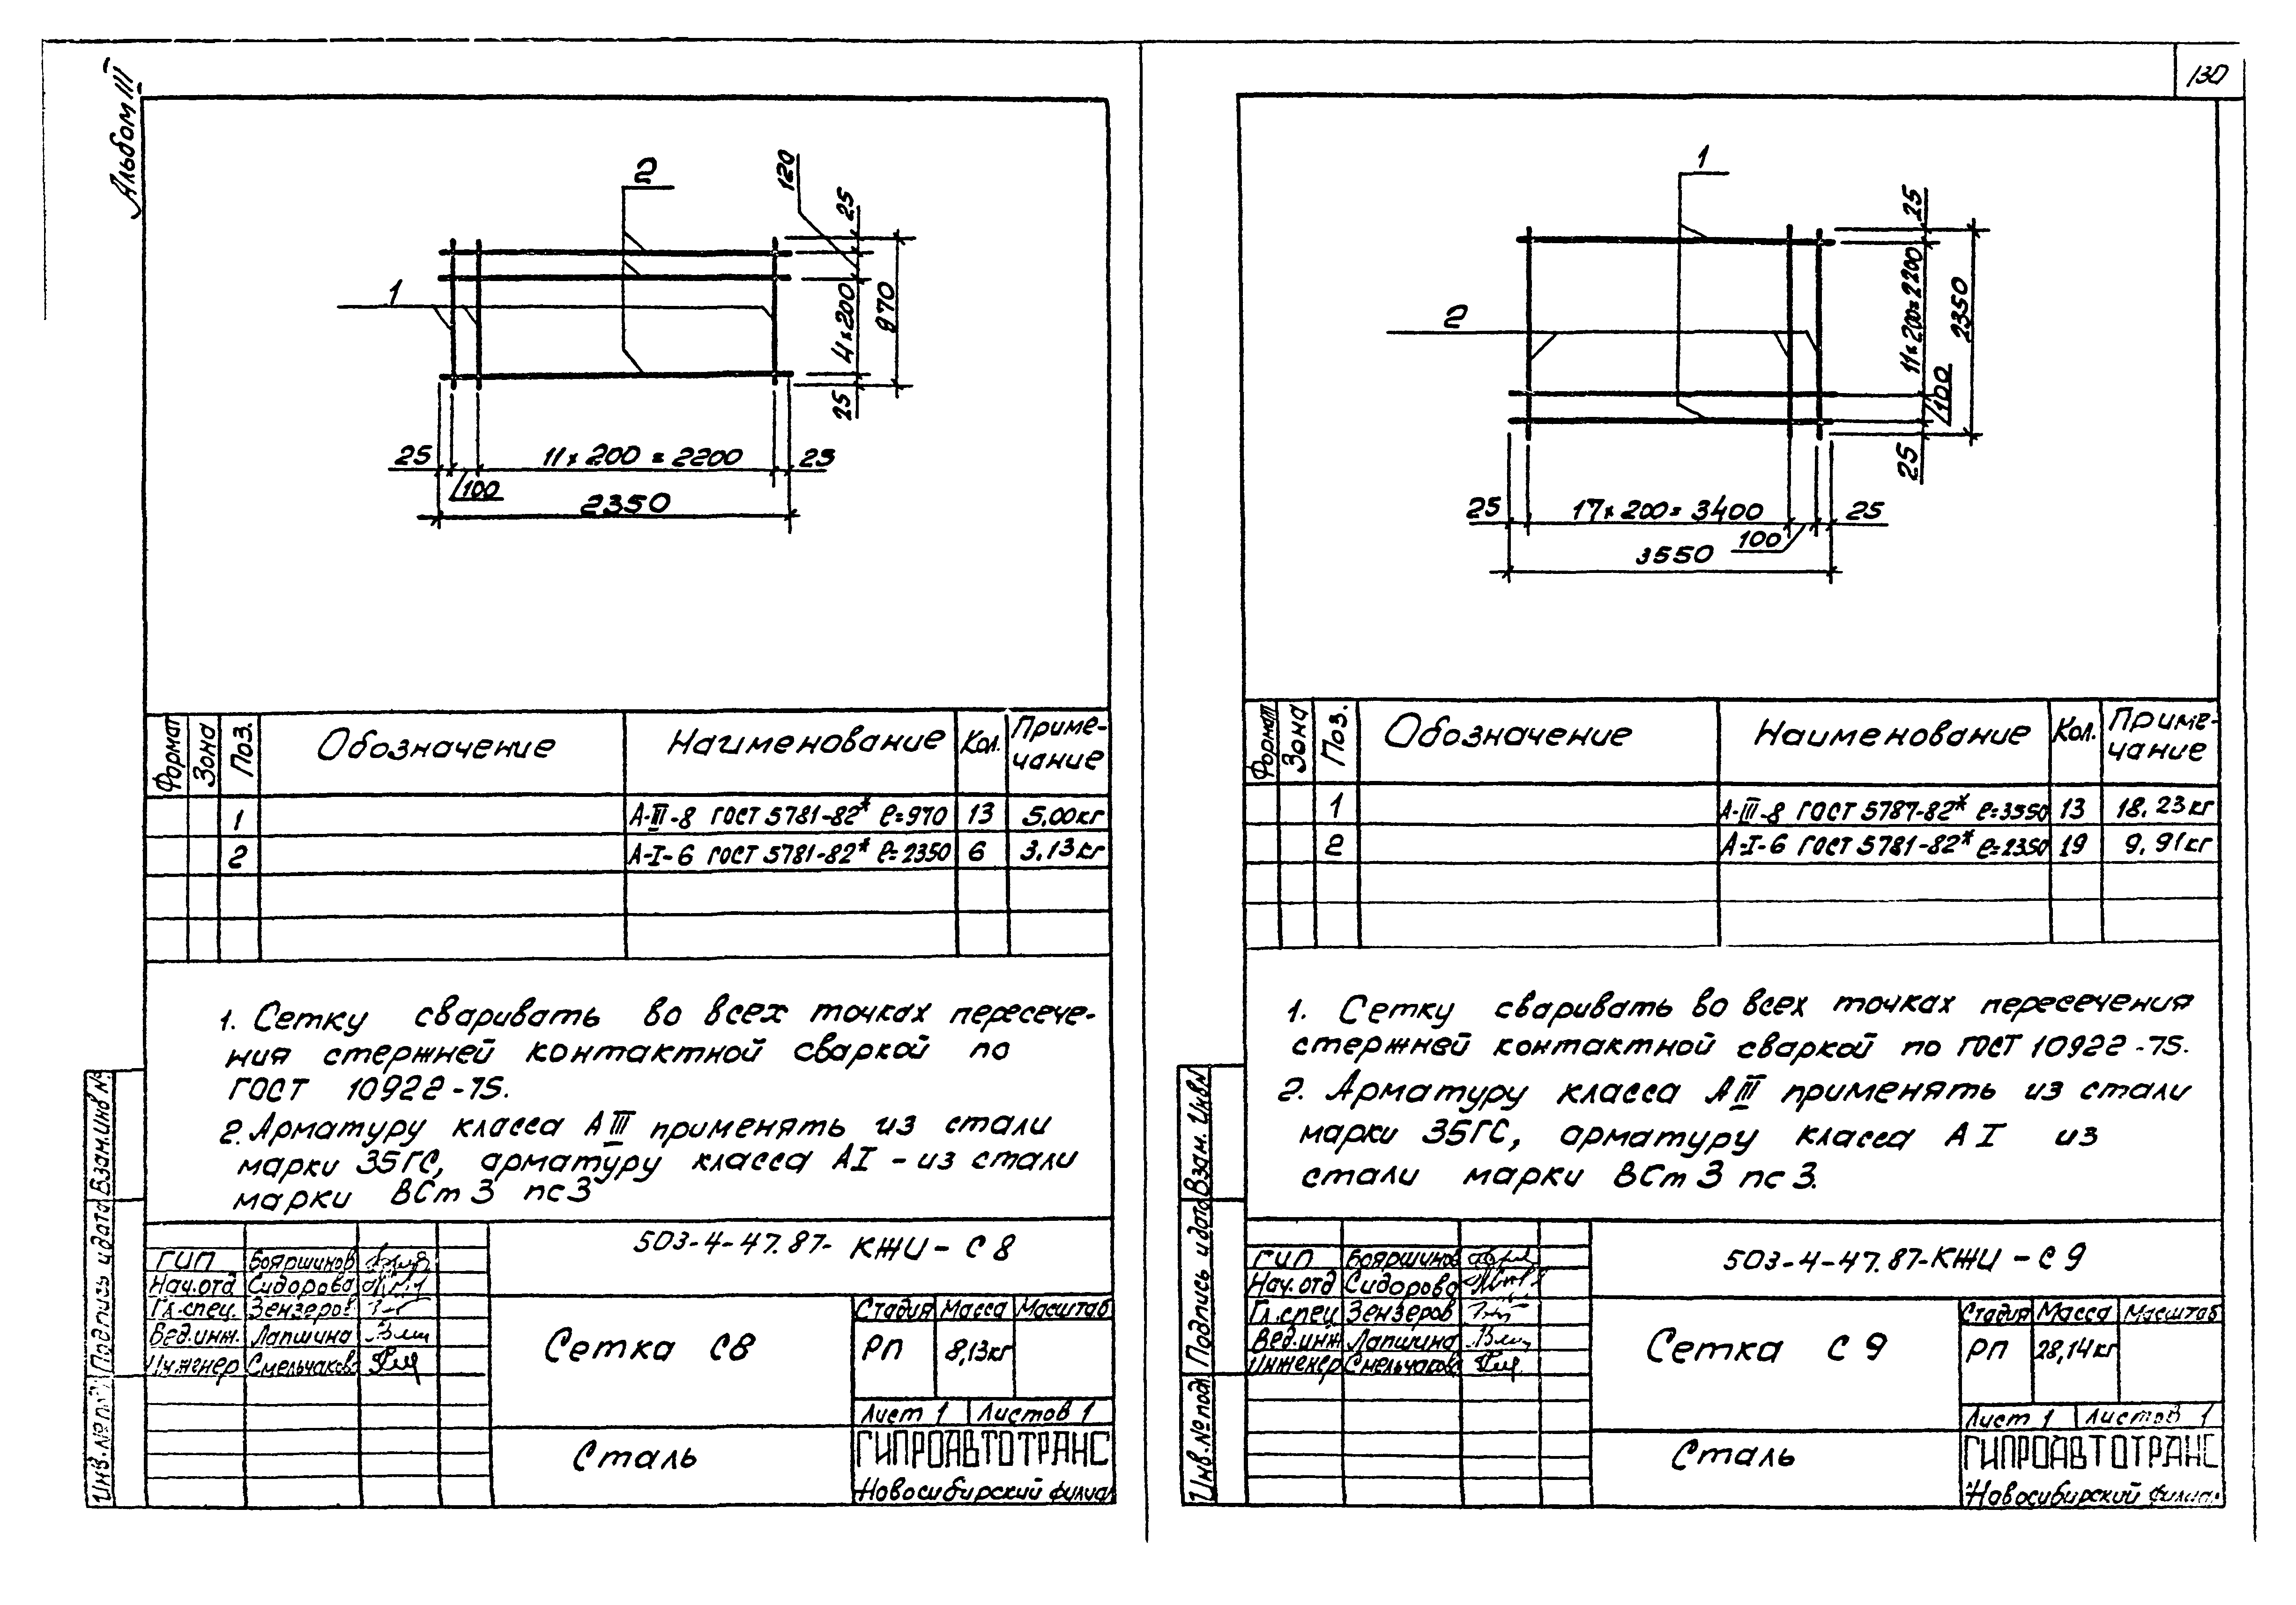 Альбом III
130
2
120
25
1
4×200
970
25
25
11×200=2200
25
100
2350
Формат Зона Поз. Обозначение Наименование Кол. Приме-
чание
1 А-III-8 ГОСТ 5781-82* ℓ=970 13 5,00кг
2 А-I-6 ГОСТ 5781-82* ℓ=2350 6 3,13кг
1. Сетку сваривать во всех точках пересече-
ния стержней контактной сваркой по
ГОСТ 10922-75.
2. Арматуру класса АIII применять из стали
марки 35ГС, арматуру класса АI - из стали
марки ВСт3 пс3
503-4-47.87- КЖИ-С8
ГИП Бояршинов
Нач.отд Сидорова
Гл.спец. Зензеров
Вед.инж. Лапшина
Инженер Смельчаков
Сетка С8
Стадия Масса Масштаб
РП 8,13кг
Лист 1 Листов 1
Сталь
ГИПРОАВТОТРАНС
Новосибирский филиал
Взам.инв №
Подпись и дата
Инв.№ подл
1
25
2
11×200=2200
2350
100
25
25
17×200=3400
25
100
3550
Формат Зона Поз. Обозначение Наименование Кол. Приме-
чание
1 А-III-8 ГОСТ 5787-82* ℓ=3550 13 18,23кг
2 А-I-6 ГОСТ 5781-82* ℓ=2350 19 9,91кг
1. Сетку сваривать во всех точках пересечения
стержней контактной сваркой по ГОСТ 10922-75.
2. Арматуру класса АIII применять из стали
марки 35ГС, арматуру класса АI из
стали марки ВСт3 пс3.
503-4-47.87-КЖИ-С9
ГИП Бояршинов
Нач.отд Сидорова
Гл.спец Зензеров
Вед.инж Лапшина
Инженер Смельчаков
Сетка С9
Стадия Масса Масштаб
РП 28,14кг
Лист 1 Листов 1
Сталь
ГИПРОАВТОТРАНС
Новосибирский филиал
Взам. Инв№
Подпись и дата
Инв.№ подл